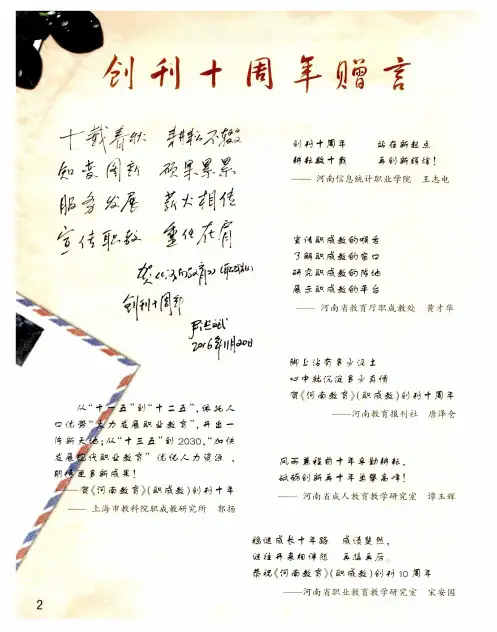 创刊十周年赠言
十载春秋 耕耘不辍
知变图新 硕果累累
服务发展 薪火相传
宣传职教 重任在肩
贺《河南教育》(职成教)
创刊十周年
2016年11月20日
创刊十周年 站在新起点
耕耘数十载 再创新辉煌!
——河南信息统计职业学院 王志电
宣传职成教的喉舌
了解职成教的窗口
研究职成教的阵地
展示职成教的平台
——河南省教育厅职成教处 黄才华
脚上沾有多少泥土
心中就沉淀多少真情
贺《河南教育》(职成教)创刊十周年
——河南教育报刊社 唐泽仓
从“十一五”到“十二五”,依托人
口优势“大力发展职业教育”,开出一
片新天地;从“十三五”到2030,“加快
发展现代职业教育”优化人力资源,
期待更多新成果!
——贺《河南教育》(职成教)创刊十年
——上海市教科院职成教研究所 郭扬
风雨兼程前十年辛勤耕耘,
砥砺创新再十年勇攀高峰!
——河南省成人教育教学研究室 谭玉辉
稳健成长十年路 成绩斐然,
继往开来相伴随 再接再厉。
恭祝《河南教育》(职成教)创刊10周年
——河南省职业教育教学研究室 宋安国
2